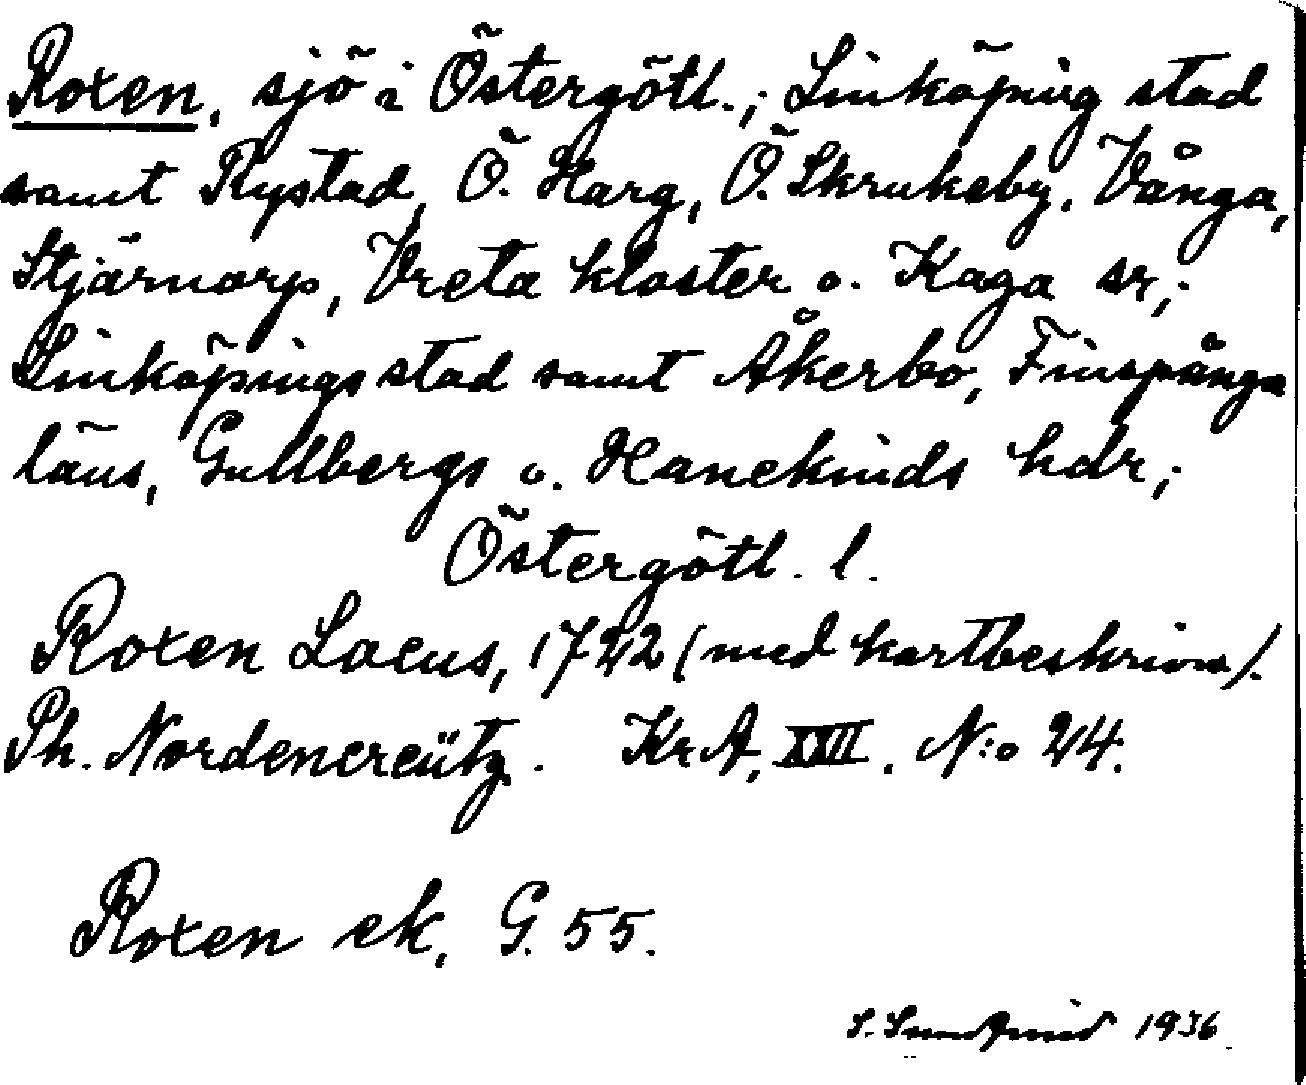 Roxen, sjö i Östergötl.; Linköping stad
samt Rystad, Ö. Harg, Ö. Skrukeby, Vånga,
Stjärnorp, Vreta kloster o. Kaga sr,;
Linköpings stad samt Åkerbo, Finspånga
läns, Gullbergs o. Hanekinds hdr;
Östergötl. l.
Roxen Lacus, 1722 (med kartbeskrivn).
Ph. Nordencreütz. KrA, XXII. N:o 24.
Roxen ek, G. 55.
S. Sundqvist 1936